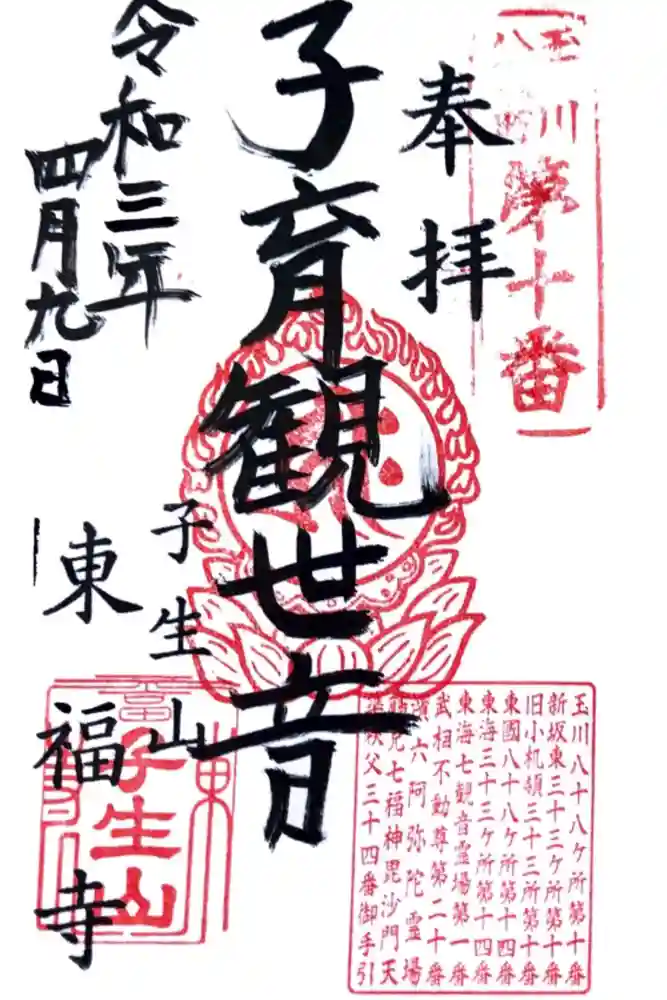 玉川八十八
第十番
奉拝
子育観世音
令和三年
四月九日
子生山
東福寺
子生山
玉川八十八ケ所第十番
新坂東三十三ケ所第十番
旧小机領三十三所第十番
東國八十八ケ所第十四番
東海三十三ケ所第十四番
東海七観音霊場第一番
武相不動尊第二十番
六阿弥陀霊場
七福神毘沙門天
秩父三十四番御手引